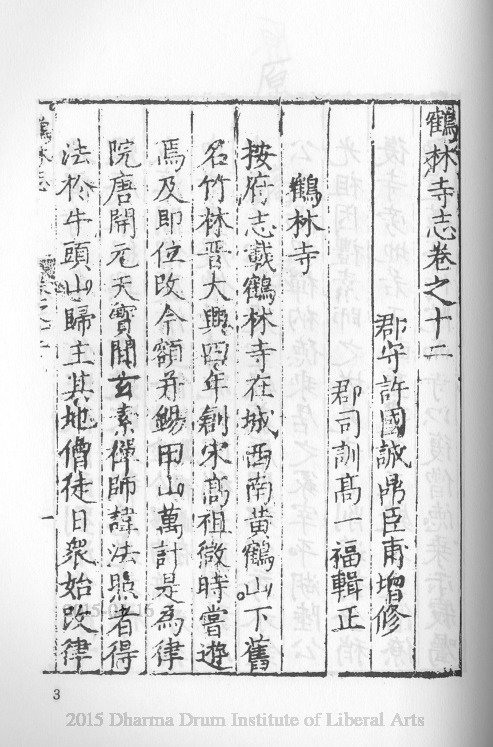 鶴林寺志卷之十二
郡守許國誠鼎臣甫增修
郡司訓高一福輯正
鶴林寺
按府志載鶴林寺在城西南黄鶴山下舊
名竹林晋大興四年創宋高祖微時嘗遊
焉及即位改今額并錫田山萬計是為律
院唐開元天寶間玄素禪師諱法照者得
法於牛頭山歸主其地僧徒日衆始改律
鶴林寺志
一
3
2015 Dharma Drum Institute of Liberal Arts